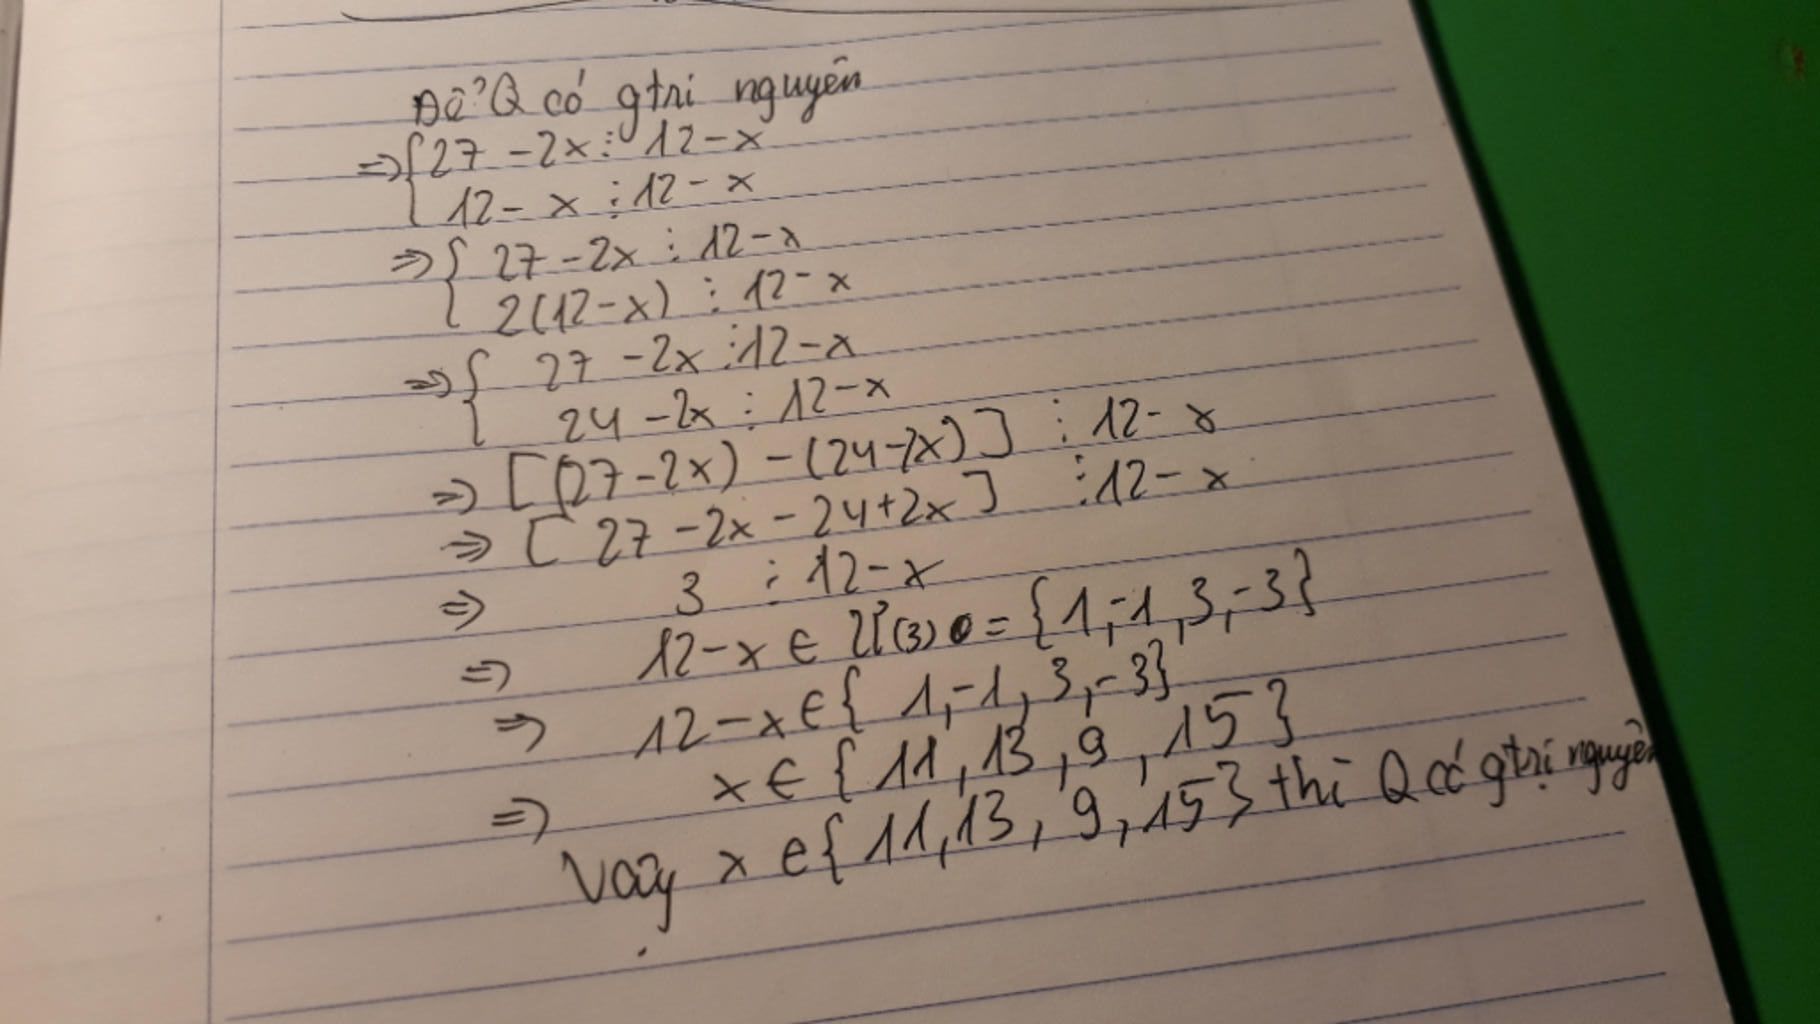 Để Q có gtri nguyên
=> { 27 - 2x ⋮ 12 - x
12 - x ⋮ 12 - x
=> { 27 - 2x ⋮ 12 - x
2(12 - x) ⋮ 12 - x
=> { 27 - 2x ⋮ 12 - x
24 - 2x ⋮ 12 - x
=> [(27 - 2x) - (24 - 2x)] ⋮ 12 - x
=> [ 27 - 2x - 24 + 2x ] ⋮ 12 - x
=> 3 ⋮ 12 - x
=> 12 - x ∈ Ư(3) = {1, -1, 3, -3}
=> 12 - x ∈ { 1, -1, 3, -3}
=> x ∈ { 11, 13, 9, 15 }
Vậy x ∈ { 11, 13, 9, 15 } thì Q có gtrị nguyên